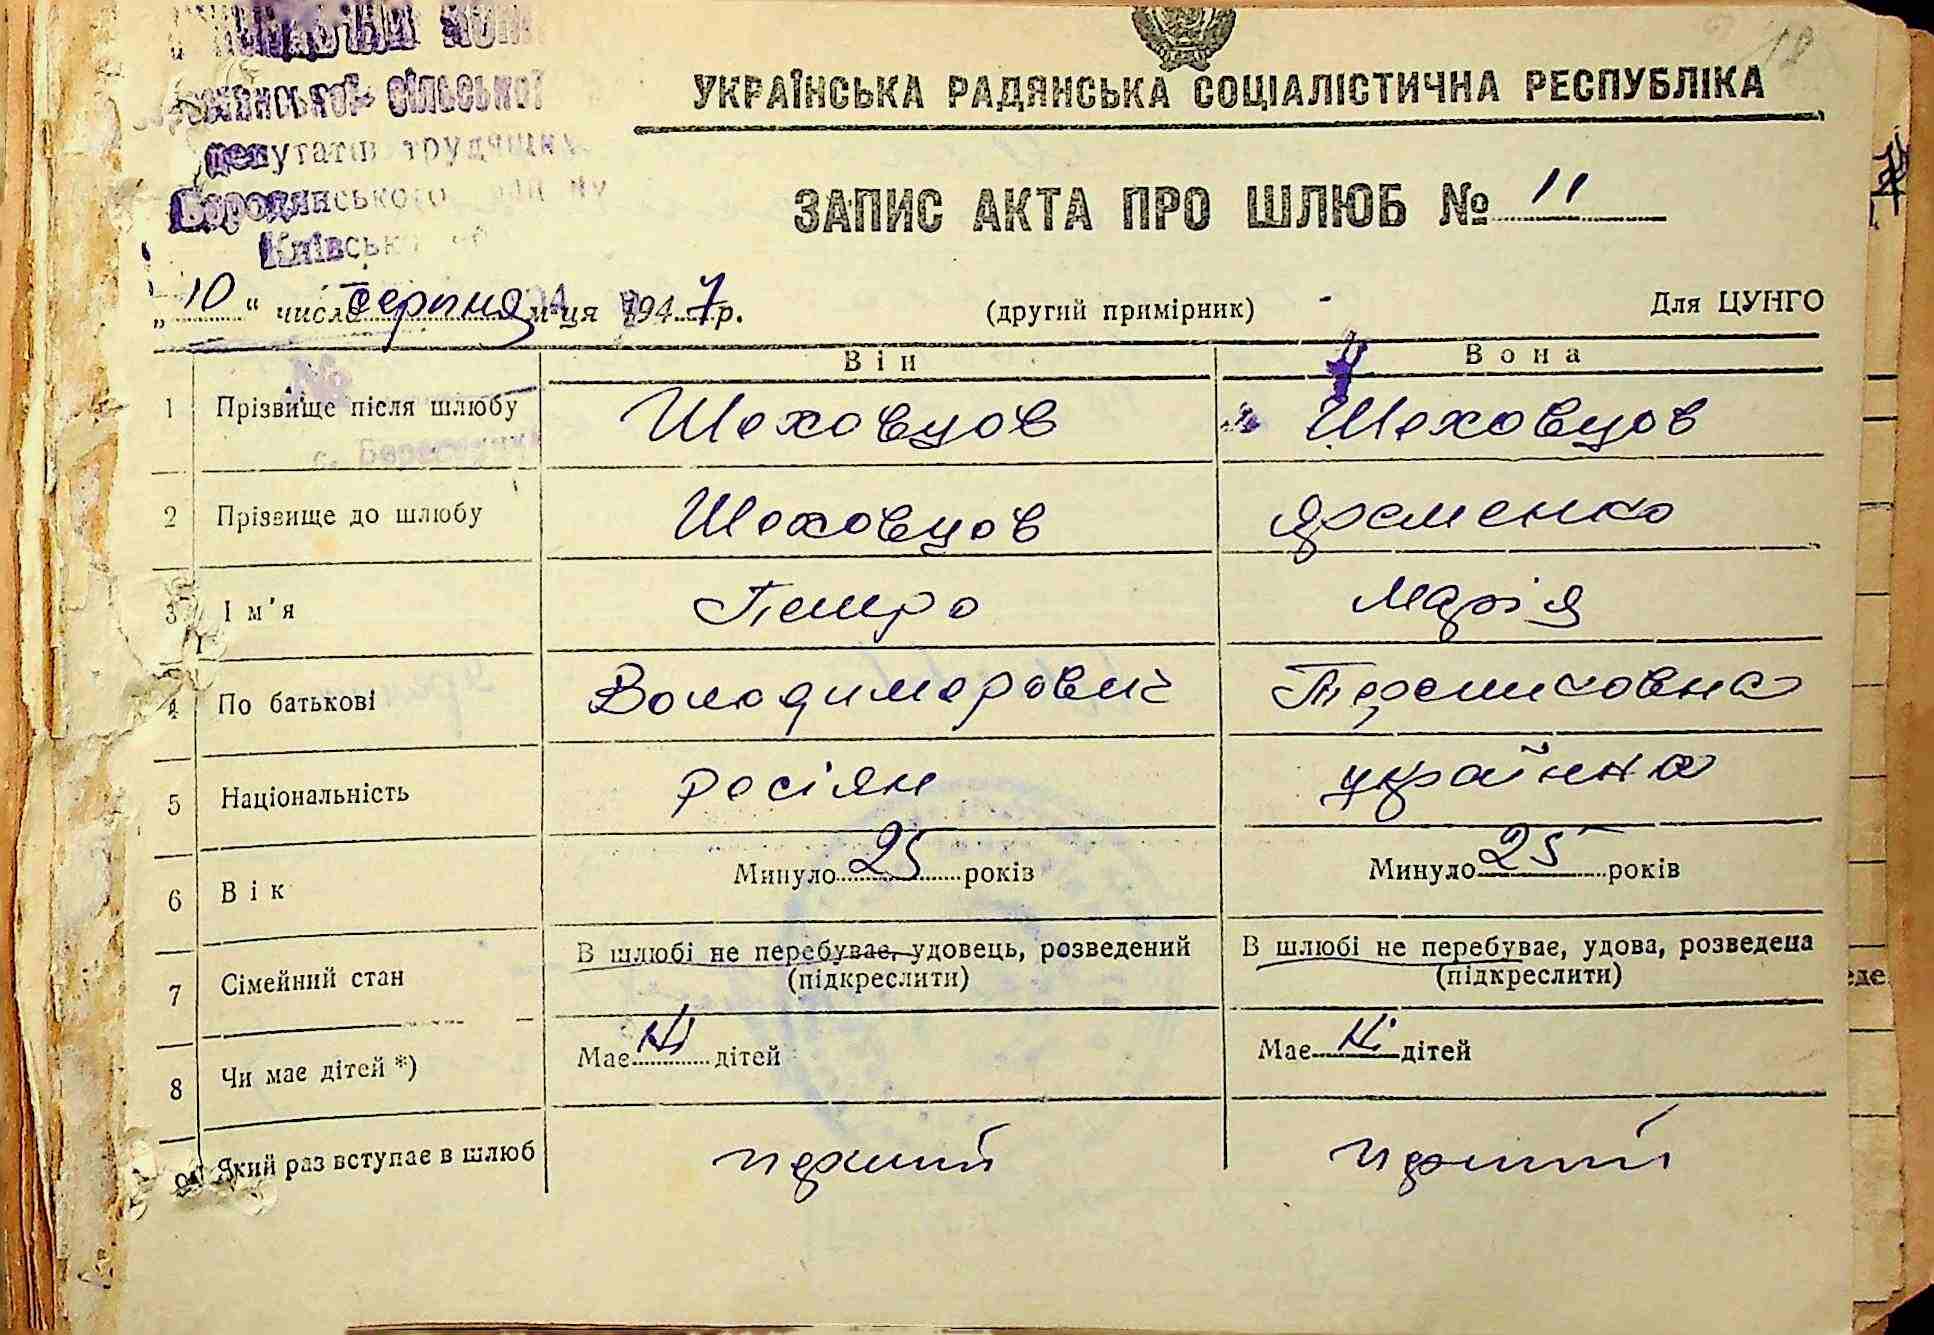 сільської
депутатів трудящих
Бородянського
Київської
УКРАЇНСЬКА РАДЯНСЬКА СОЦІАЛІСТИЧНА РЕСПУБЛІКА
ЗАПИС АКТА ПРО ШЛЮБ № 11
„10“ числа серпня м-ця 1947 р. (другий примірник) Для ЦУНГО
Він Вона
1 Прізвище після шлюбу Шеховцов Шеховцов
2 Прізвище до шлюбу Шеховцов Яременко
3 Ім'я Петро Марія
4 По батькові Володимерович
5 Національність росіян українка
6 Вік Минуло 25 років Минуло 25 років
7 Сімейний стан В шлюбі не перебуває, удовець, розведений В шлюбі не перебуває, удова, розведена
(підкреслити) (підкреслити)
8 Чи має дітей *) Має Ні дітей Має Ні дітей
9 Який раз вступає в шлюб перший перший